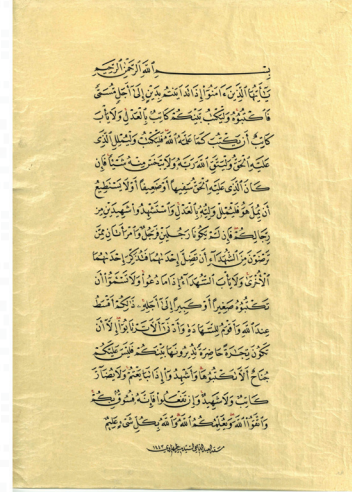 بِسْمِ اللَّهِ الرَّحْمَٰنِ الرَّحِيمِ
يَا أَيُّهَا الَّذِينَ ءَامَنُوا إِذَا تَدَايَنتُم بِدَيْنٍ إِلَىٰ أَجَلٍ مُّسَمًّى
فَاكْتُبُوهُ وَلْيَكْتُب بَّيْنَكُمْ كَاتِبٌ بِالْعَدْلِ وَلَا يَأْبَ
كَاتِبٌ أَن يَكْتُبَ كَمَا عَلَّمَهُ اللَّهُ فَلْيَكْتُبْ وَلْيُمْلِلِ الَّذِي
عَلَيْهِ الْحَقُّ وَلْيَتَّقِ اللَّهَ رَبَّهُ وَلَا يَبْخَسْ مِنْهُ شَيْئًا فَإِن
كَانَ الَّذِي عَلَيْهِ الْحَقُّ سَفِيهًا أَوْ ضَعِيفًا أَوْ لَا يَسْتَطِيعُ
أَن يُمِلَّ هُوَ فَلْيُمْلِلْ وَلِيُّهُ بِالْعَدْلِ وَاسْتَشْهِدُوا شَهِيدَيْنِ مِن
رِّجَالِكُمْ فَإِن لَّمْ يَكُونَا رَجُلَيْنِ فَرَجُلٌ وَامْرَأَتَانِ مِمَّن
تَرْضَوْنَ مِنَ الشُّهَدَاءِ أَن تَضِلَّ إِحْدَاهُمَا فَتُذَكِّرَ إِحْدَاهُمَا
الْأُخْرَىٰ وَلَا يَأْبَ الشُّهَدَاءُ إِذَا مَا دُعُوا وَلَا تَسْأَمُوا أَن
تَكْتُبُوهُ صَغِيرًا أَوْ كَبِيرًا إِلَىٰ أَجَلِهِ ذَٰلِكُمْ أَقْسَطُ
عِندَ اللَّهِ وَأَقْوَمُ لِلشَّهَادَةِ وَأَدْنَىٰ أَلَّا تَرْتَابُوا إِلَّا أَن
تَكُونَ تِجَارَةً حَاضِرَةً تُدِيرُونَهَا بَيْنَكُمْ فَلَيْسَ عَلَيْكُمْ
جُنَاحٌ أَلَّا تَكْتُبُوهَا وَأَشْهِدُوا إِذَا تَبَايَعْتُمْ وَلَا يُضَارَّ
كَاتِبٌ وَلَا شَهِيدٌ وَإِن تَفْعَلُوا فَإِنَّهُ فُسُوقٌ بِكُمْ
وَاتَّقُوا اللَّهَ وَيُعَلِّمُكُمُ اللَّهُ وَاللَّهُ بِكُلِّ شَيْءٍ عَلِيمٌ